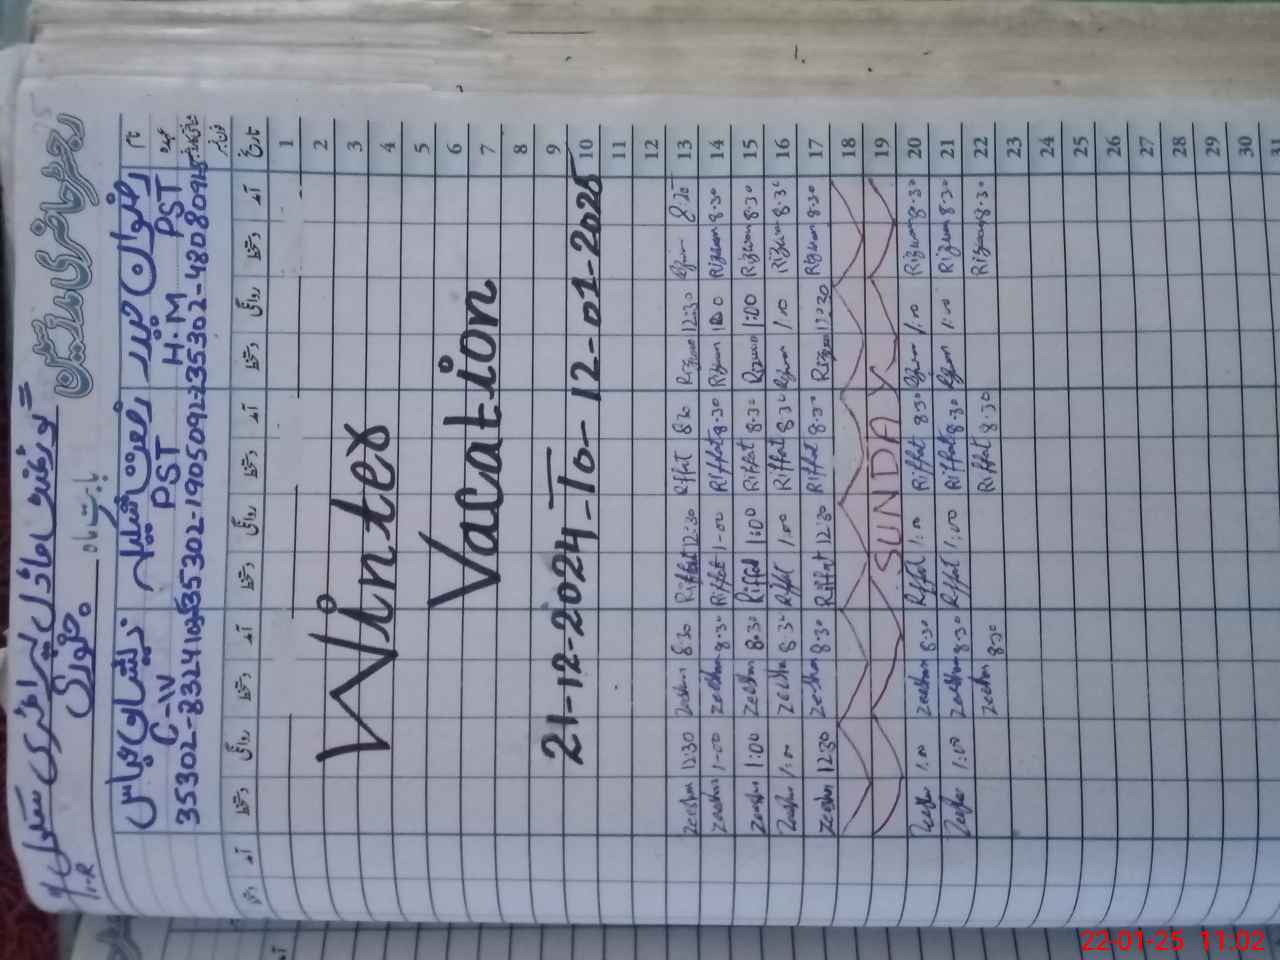 رجسٹر حاضری مدرسین
گورنمنٹ ماڈل پرائمری سکول
بابت ماہ جنوری
نام رضوان حیدر رفعت ذیشان عباس
عہدہ H.M PST PST C-IV
35302-1905092 35302-3324
تاریخ آمد دستخط روانگی دستخط آمد دستخط روانگی دستخط آمد دستخط روانگی دستخط آمد
1
2
3
4
5
6
7
8
9
10
11
12
Winter
Vacation
21-12-2024-To-12-01-2025
13 8:25 Rizwan 12:30 Rizwan 8:30 Riffat 12:30 Riffat 8:30 Zeeshan 12:30 Zeeshan
14 8:30 Rizwan 1:00 Rizwan 8:30 Riffat 1:00 Riffat 8:30 Zeeshan 1:00 Zeeshan
15 8:30 Rizwan 1:00 Rizwan 8:30 Riffat 1:00 Riffat 8:30 Zeeshan 1:00 Zeeshan
16 8:30 Rizwan 1:00 Rizwan 8:30 Riffat 1:00 Riffat 8:30 Zeeshan 1:00 Zeeshan
17 8:30 Rizwan 12:30 Rizwan 8:30 Riffat 12:30 Riffat 8:30 Zeeshan 12:30 Zeeshan
18
19 SUNDAY
20 8:30 Rizwan 1:00 Rizwan 8:30 Riffat 1:00 Riffat 8:30 Zeeshan 1:00 Zeeshan
21 8:30 Rizwan 1:00 Rizwan 8:30 Riffat 1:00 Riffat 8:30 Zeeshan 1:00 Zeeshan
22 8:30 Rizwan 8:30 Riffat 8:30 Zeeshan
23
24
25
26
27
28
29
30
31
22-01-25 11:02